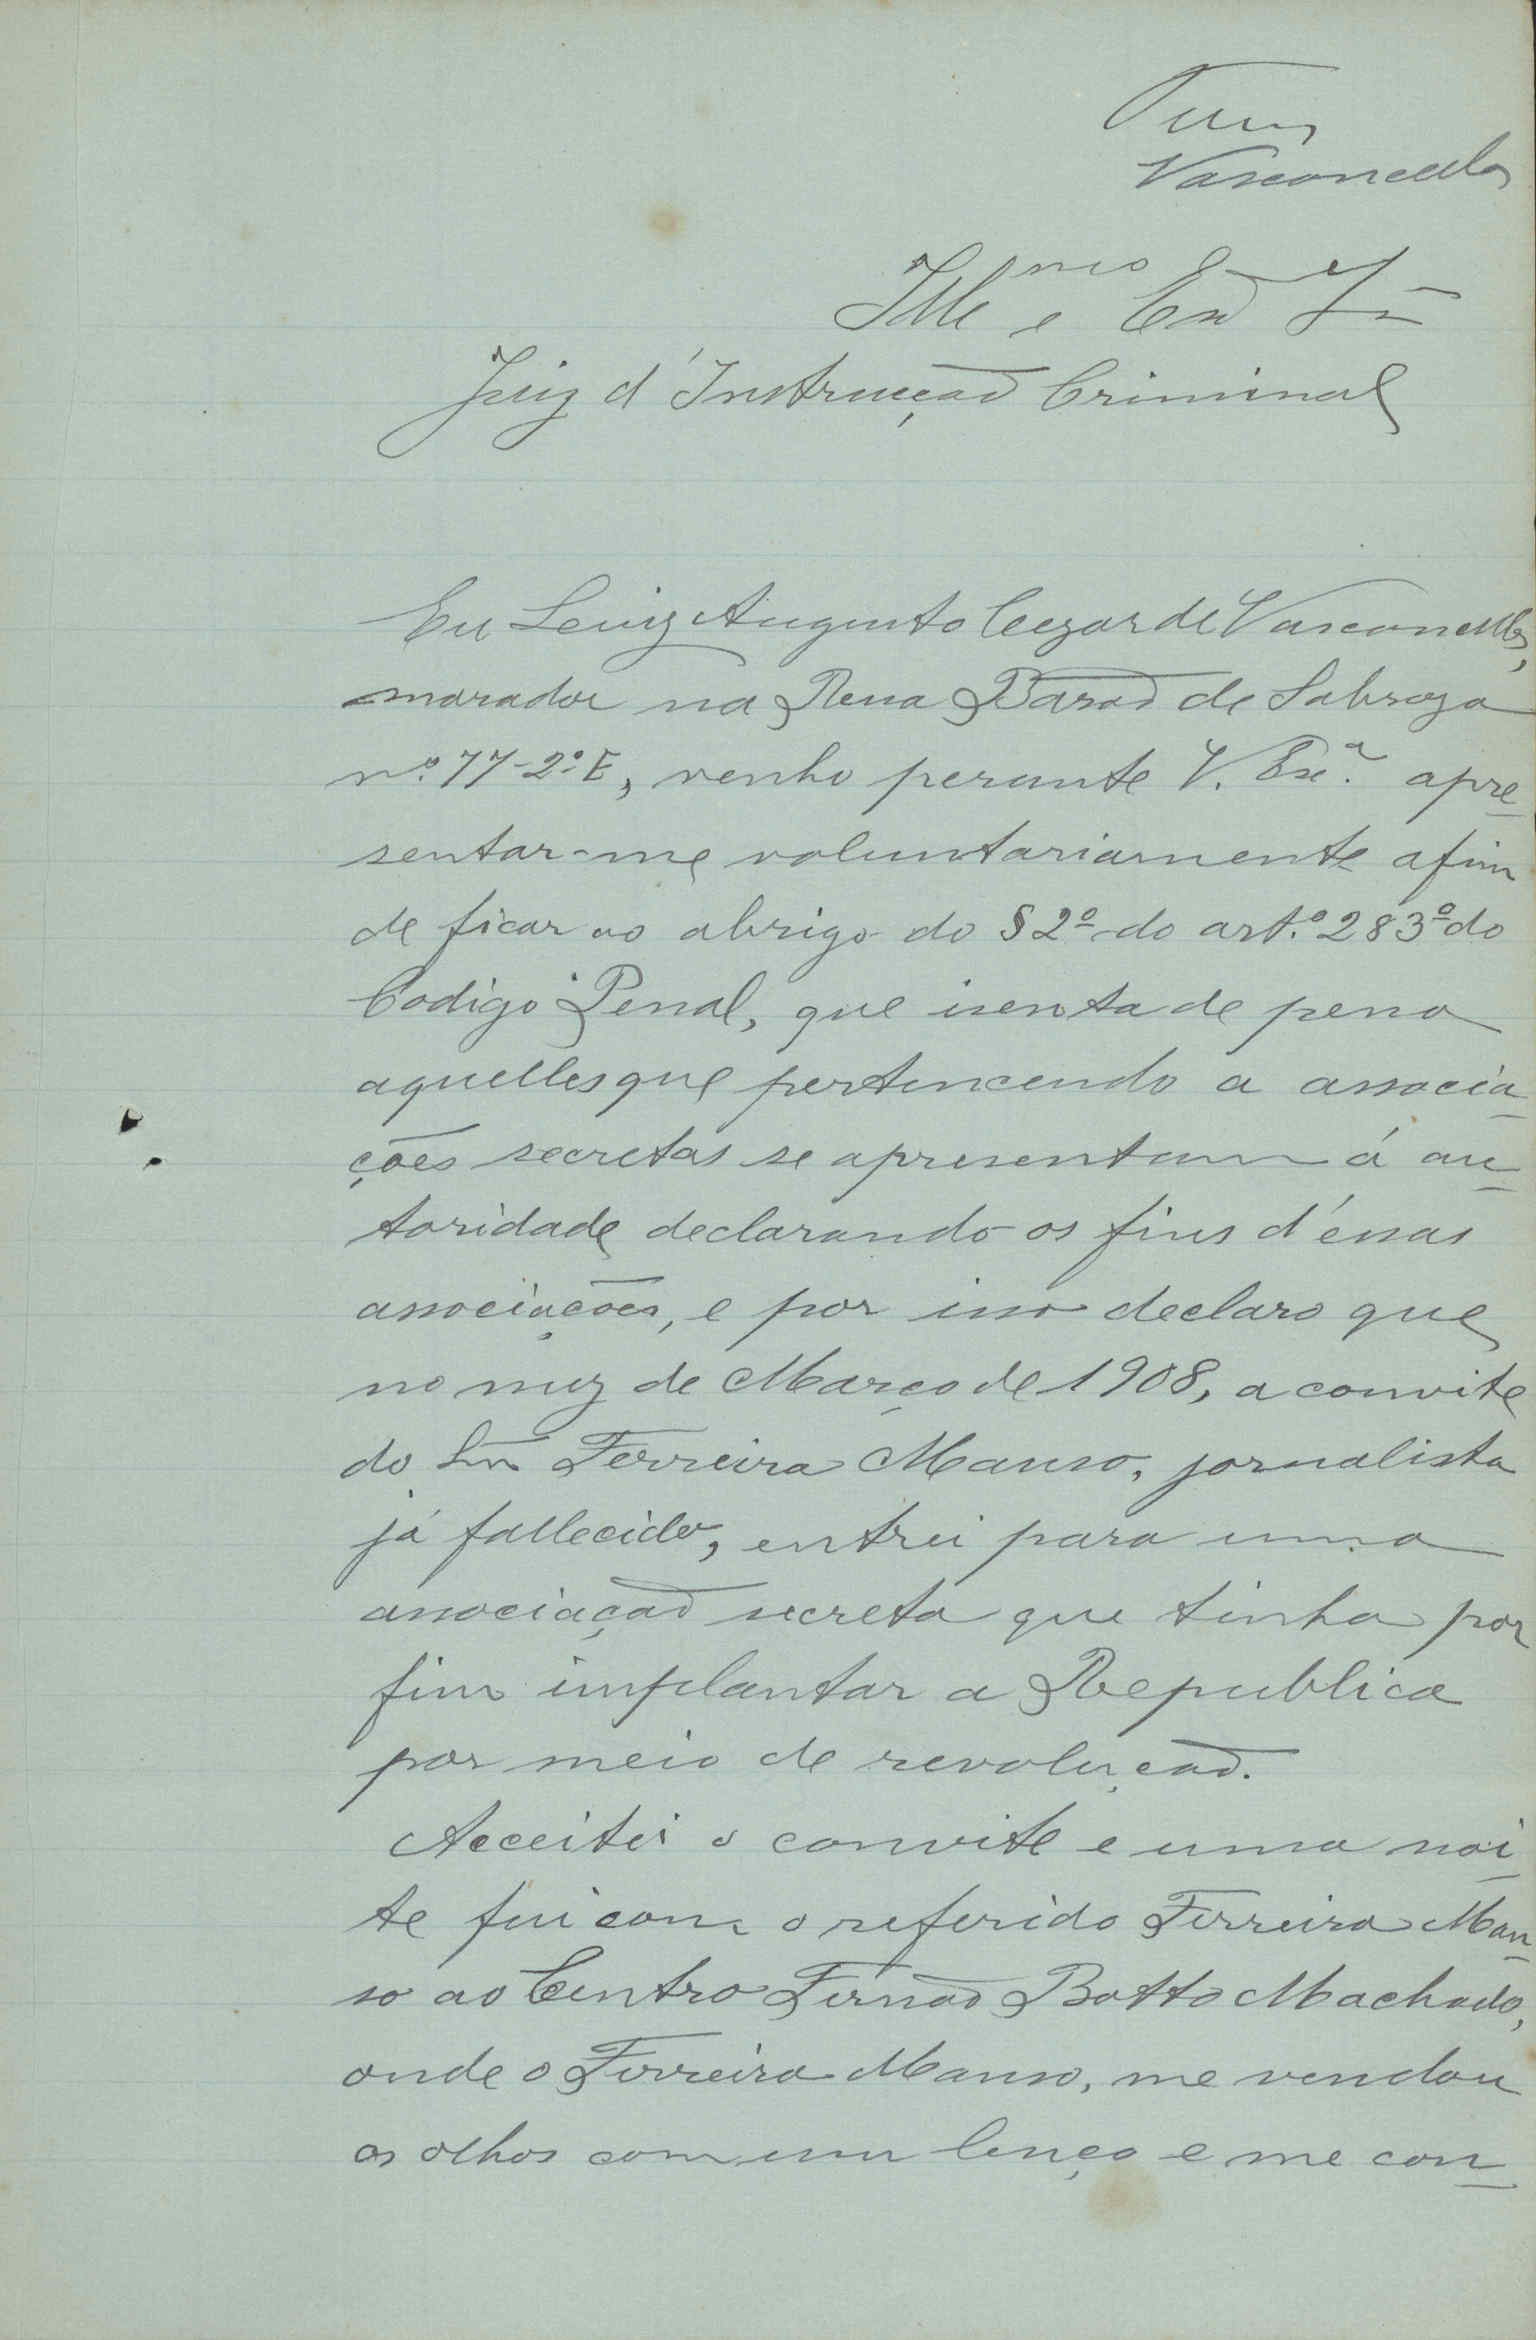 Vasconcellos
Ill<sup>mo</sup> e Ex<sup>mo</sup> Snr
Juiz d'Instrucção Criminal
Eu Luiz Augusto Cezar de Vasconcellos,
morador na Rua Barão de Sabroza
nº. 77-2º. E, venho perante V. Exª. apre-
sentar-me voluntariamente afim
de ficar ao abrigo do § 2º do artº. 283º do
Codigo Penal, que isenta de pena
aquelles que pertencendo a associa-
ções secretas se apresentam á au-
toridade declarando os fins d'éssas
associações, e por isso declaro que
no mez de Março de 1908, a convite
do Snr Ferreira Manso, jornalista
já fallecido, entrei para uma
associação secreta que tinha por
fim implantar a Republica
por meio de revolução.
Acceitei o convite e uma noi-
te fui com o referido Ferreira Man-
so ao Centro Fernão Botto Machado,
onde o Ferreira Manso, me vendou
os olhos com um lenço e me con-